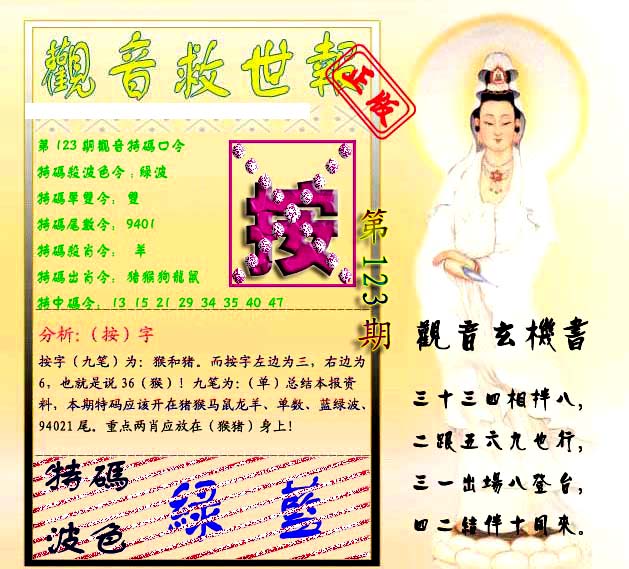 觀音救世報
正版
第123期觀音特碼口令
特碼殺波色令：綠波
特碼單雙令： 雙
特碼尾數令： 9401
特碼殺肖令： 羊
特碼出肖令： 猪猴狗龍鼠
特中碼令： 13 15 21 29 34 35 40 47
按
第123期
分析:（按）字
按字（九笔）为：猴和猪。而按字左边为三，右边为
6，也就是说 36（猴）！九笔为:（单）总结本报资
料，本期特码应该开在猪猴马鼠龙羊、单数、蓝绿波、
94021 尾。重点两肖应放在（猴猪）身上!
特碼
波色
綠 藍
觀音玄機書
三十三四相拌八，
二跟五六九也行，
三一出場八登台，
四二結伴十同來。